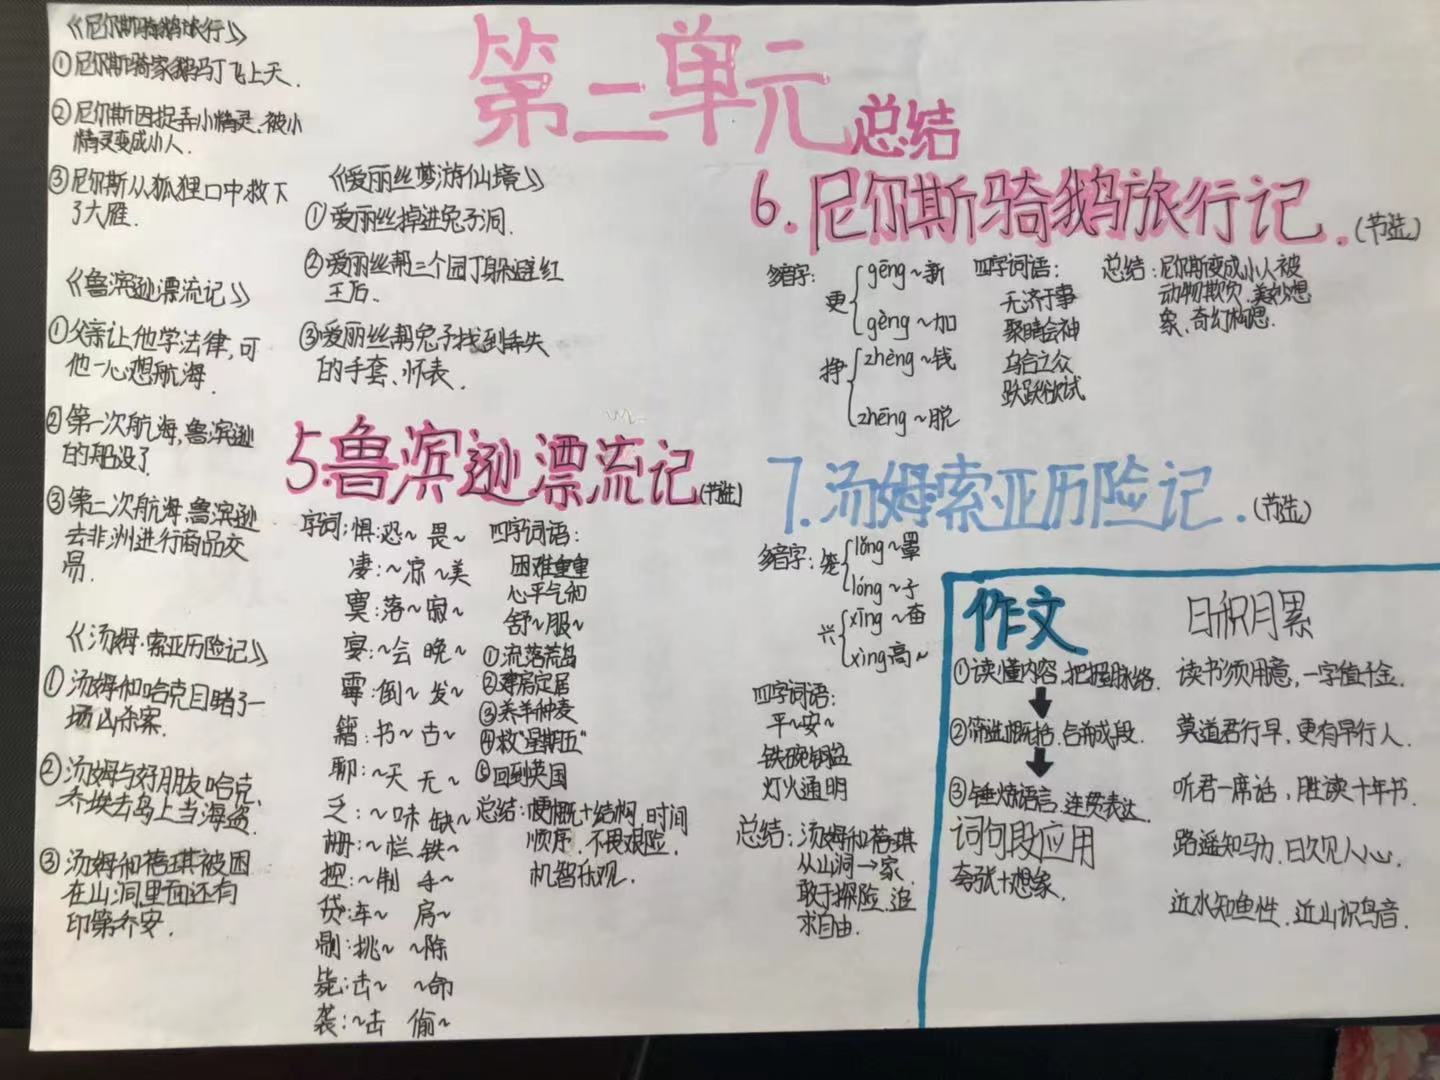 第二单元
总结
《尼尔斯骑鹅旅行》
①尼尔斯骑家鹅马丁飞上天.
②尼尔斯因捉弄小精灵、被小
精灵变成小人.
③尼尔斯从狐狸口中救下
了大雁.
《鲁滨逊漂流记》
①父亲让他学法律,可
他一心想航海.
②第一次航海,鲁滨逊
的船没了.
③第二次航海,鲁滨逊
去非洲进行商品交
易.
《汤姆·索亚历险记》
①汤姆和哈克目睹了一
场凶杀案.
②汤姆与好朋友哈克、
乔埃去岛上当海盗.
③汤姆和蓓琪被困
在山洞里面还有
印第乔安.
《爱丽丝梦游仙境》
①爱丽丝掉进兔子洞.
②爱丽丝帮三个园丁躲避红
王后.
③爱丽丝帮兔子找到丢失
的手套、怀表.
5.鲁滨逊漂流记(节选)
字词:惧:恐~ 畏~
凄:~凉 ~美
寞:落~ 寂~
宴:~会 晚~
霉:倒~ 发~
籍:书~ 古~
聊:~天 无~
乏:~味 缺~
栅:~栏 铁~
控:~制 手~
贷:车~ 房~
剔:挑~ ~除
毙:击~ ~命
袭:~击 偷~
四字词语:
困难重重
心平气和
舒~服~
①流落荒岛
②建房定居
③养羊种麦
④救"星期五"
⑤回到英国
总结:梗概+结构,时间
顺序,不畏艰险,
机智乐观.
6.尼尔斯骑鹅旅行记.(节选)
多音字:
更 gēng~新
gèng~加
挣 zhèng~钱
zhēng~脱
四字词语:
无济于事
聚精会神
乌合之众
跃跃欲试
总结:尼尔斯变成小人被
动物欺负,美妙想
象、奇幻构思.
7.汤姆索亚历险记.(节选)
多音字:笼 lǒng~罩
lóng~子
兴 xīng~奋
xìng高~
四字词语:
平~安~
铁碗钢盆
灯火通明
总结:汤姆和蓓琪
从山洞→家,
敢于探险,追
求自由.
作文
①读懂内容,把握脉络.
②筛选概括,合并成段.
③锤炼语言,连贯表达.
词句段应用
夸张+想象.
日积月累
读书须用意,一字值千金.
莫道君行早,更有早行人.
听君一席话,胜读十年书.
路遥知马力,日久见人心.
近水知鱼性,近山识鸟音.